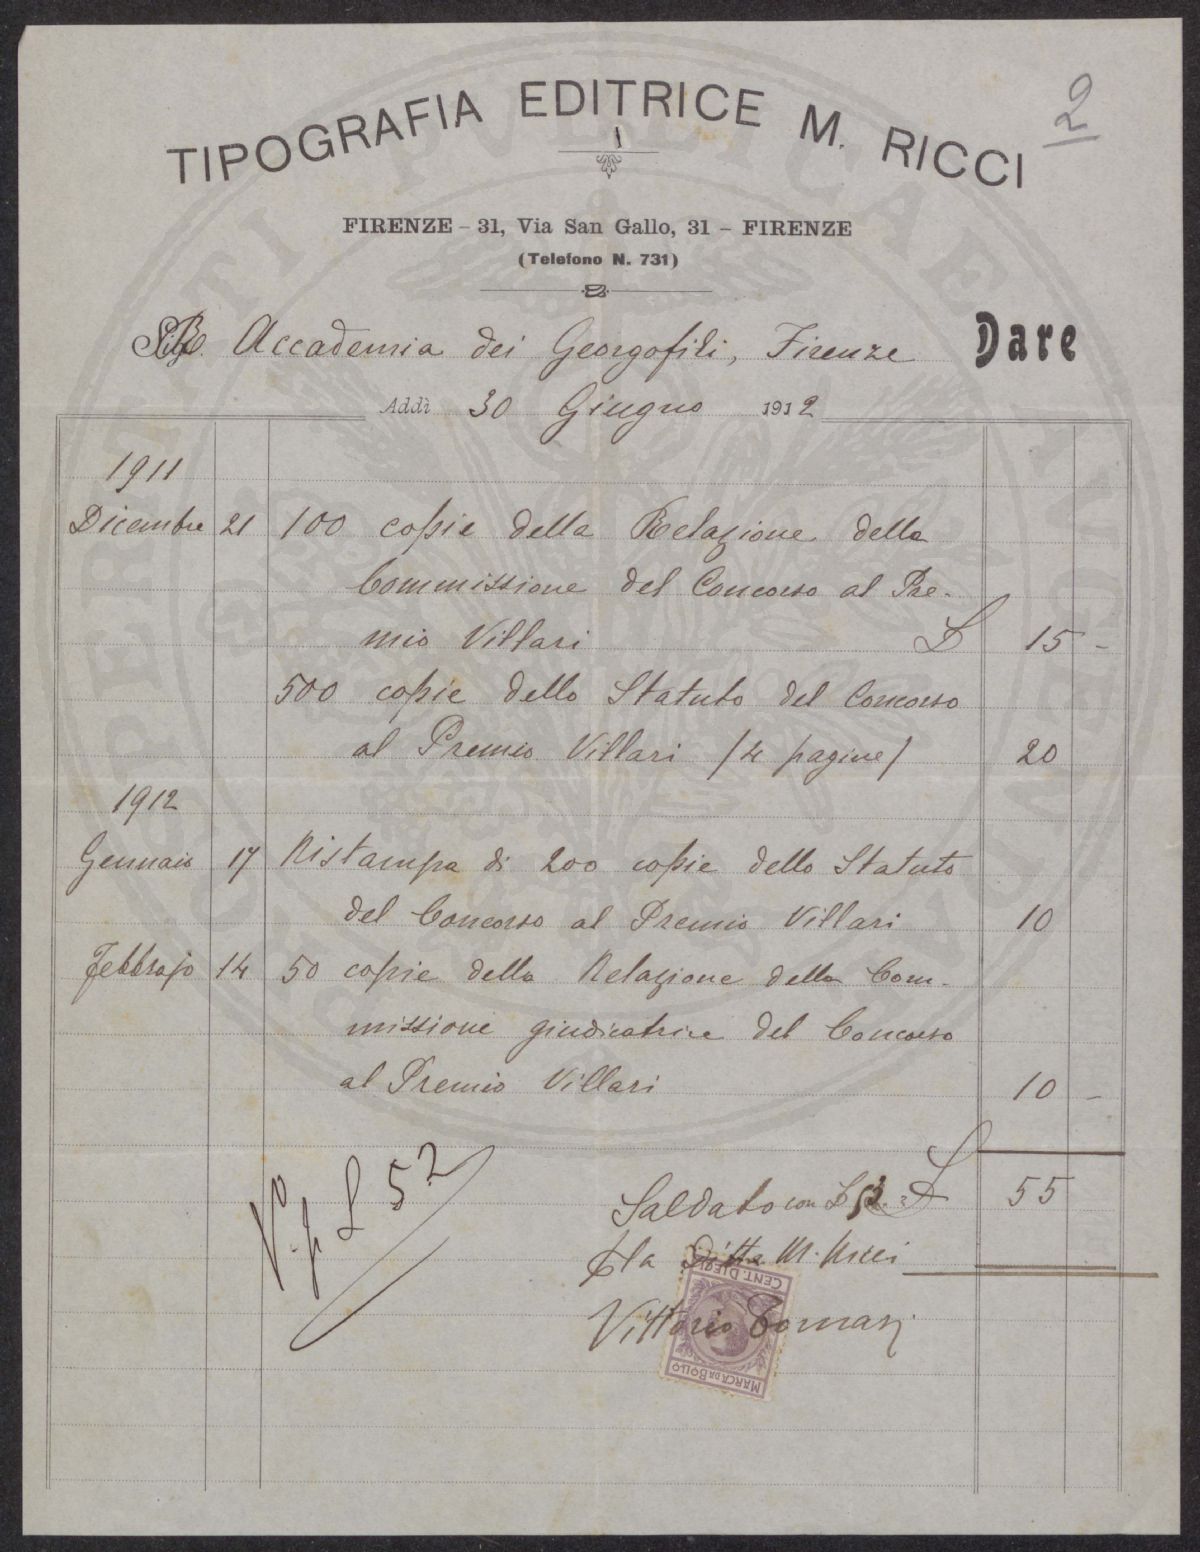 TIPOGRAFIA EDITRICE M. RICCI
2
FIRENZE - 31, Via San Gallo, 31 - FIRENZE
(Telefono N. 731)
R. Accademia dei Georgofili, Firenze Dare
Addì 30 Giugno 1912
1911
Dicembre 21 100 copie della Relazione della
Commissione del Concorso al Pre-
mio Villari L 15 -
500 copie dello Statuto del Concorso
al Premio Villari (4 pagine) 20
1912
Gennaio 17 Ristampa di 200 copie dello Statuto
del Concorso al Premio Villari 10
Febbrajo 14 50 copie della Relazione della Com-
missione giudicatrice del Concorso
al Premio Villari 10 -
V. p L 52
Saldato con L 52. L 55
p la Ditta M. Ricci
Vittorio Tomasi
CENT. DIECI
MARCA DA BOLLO